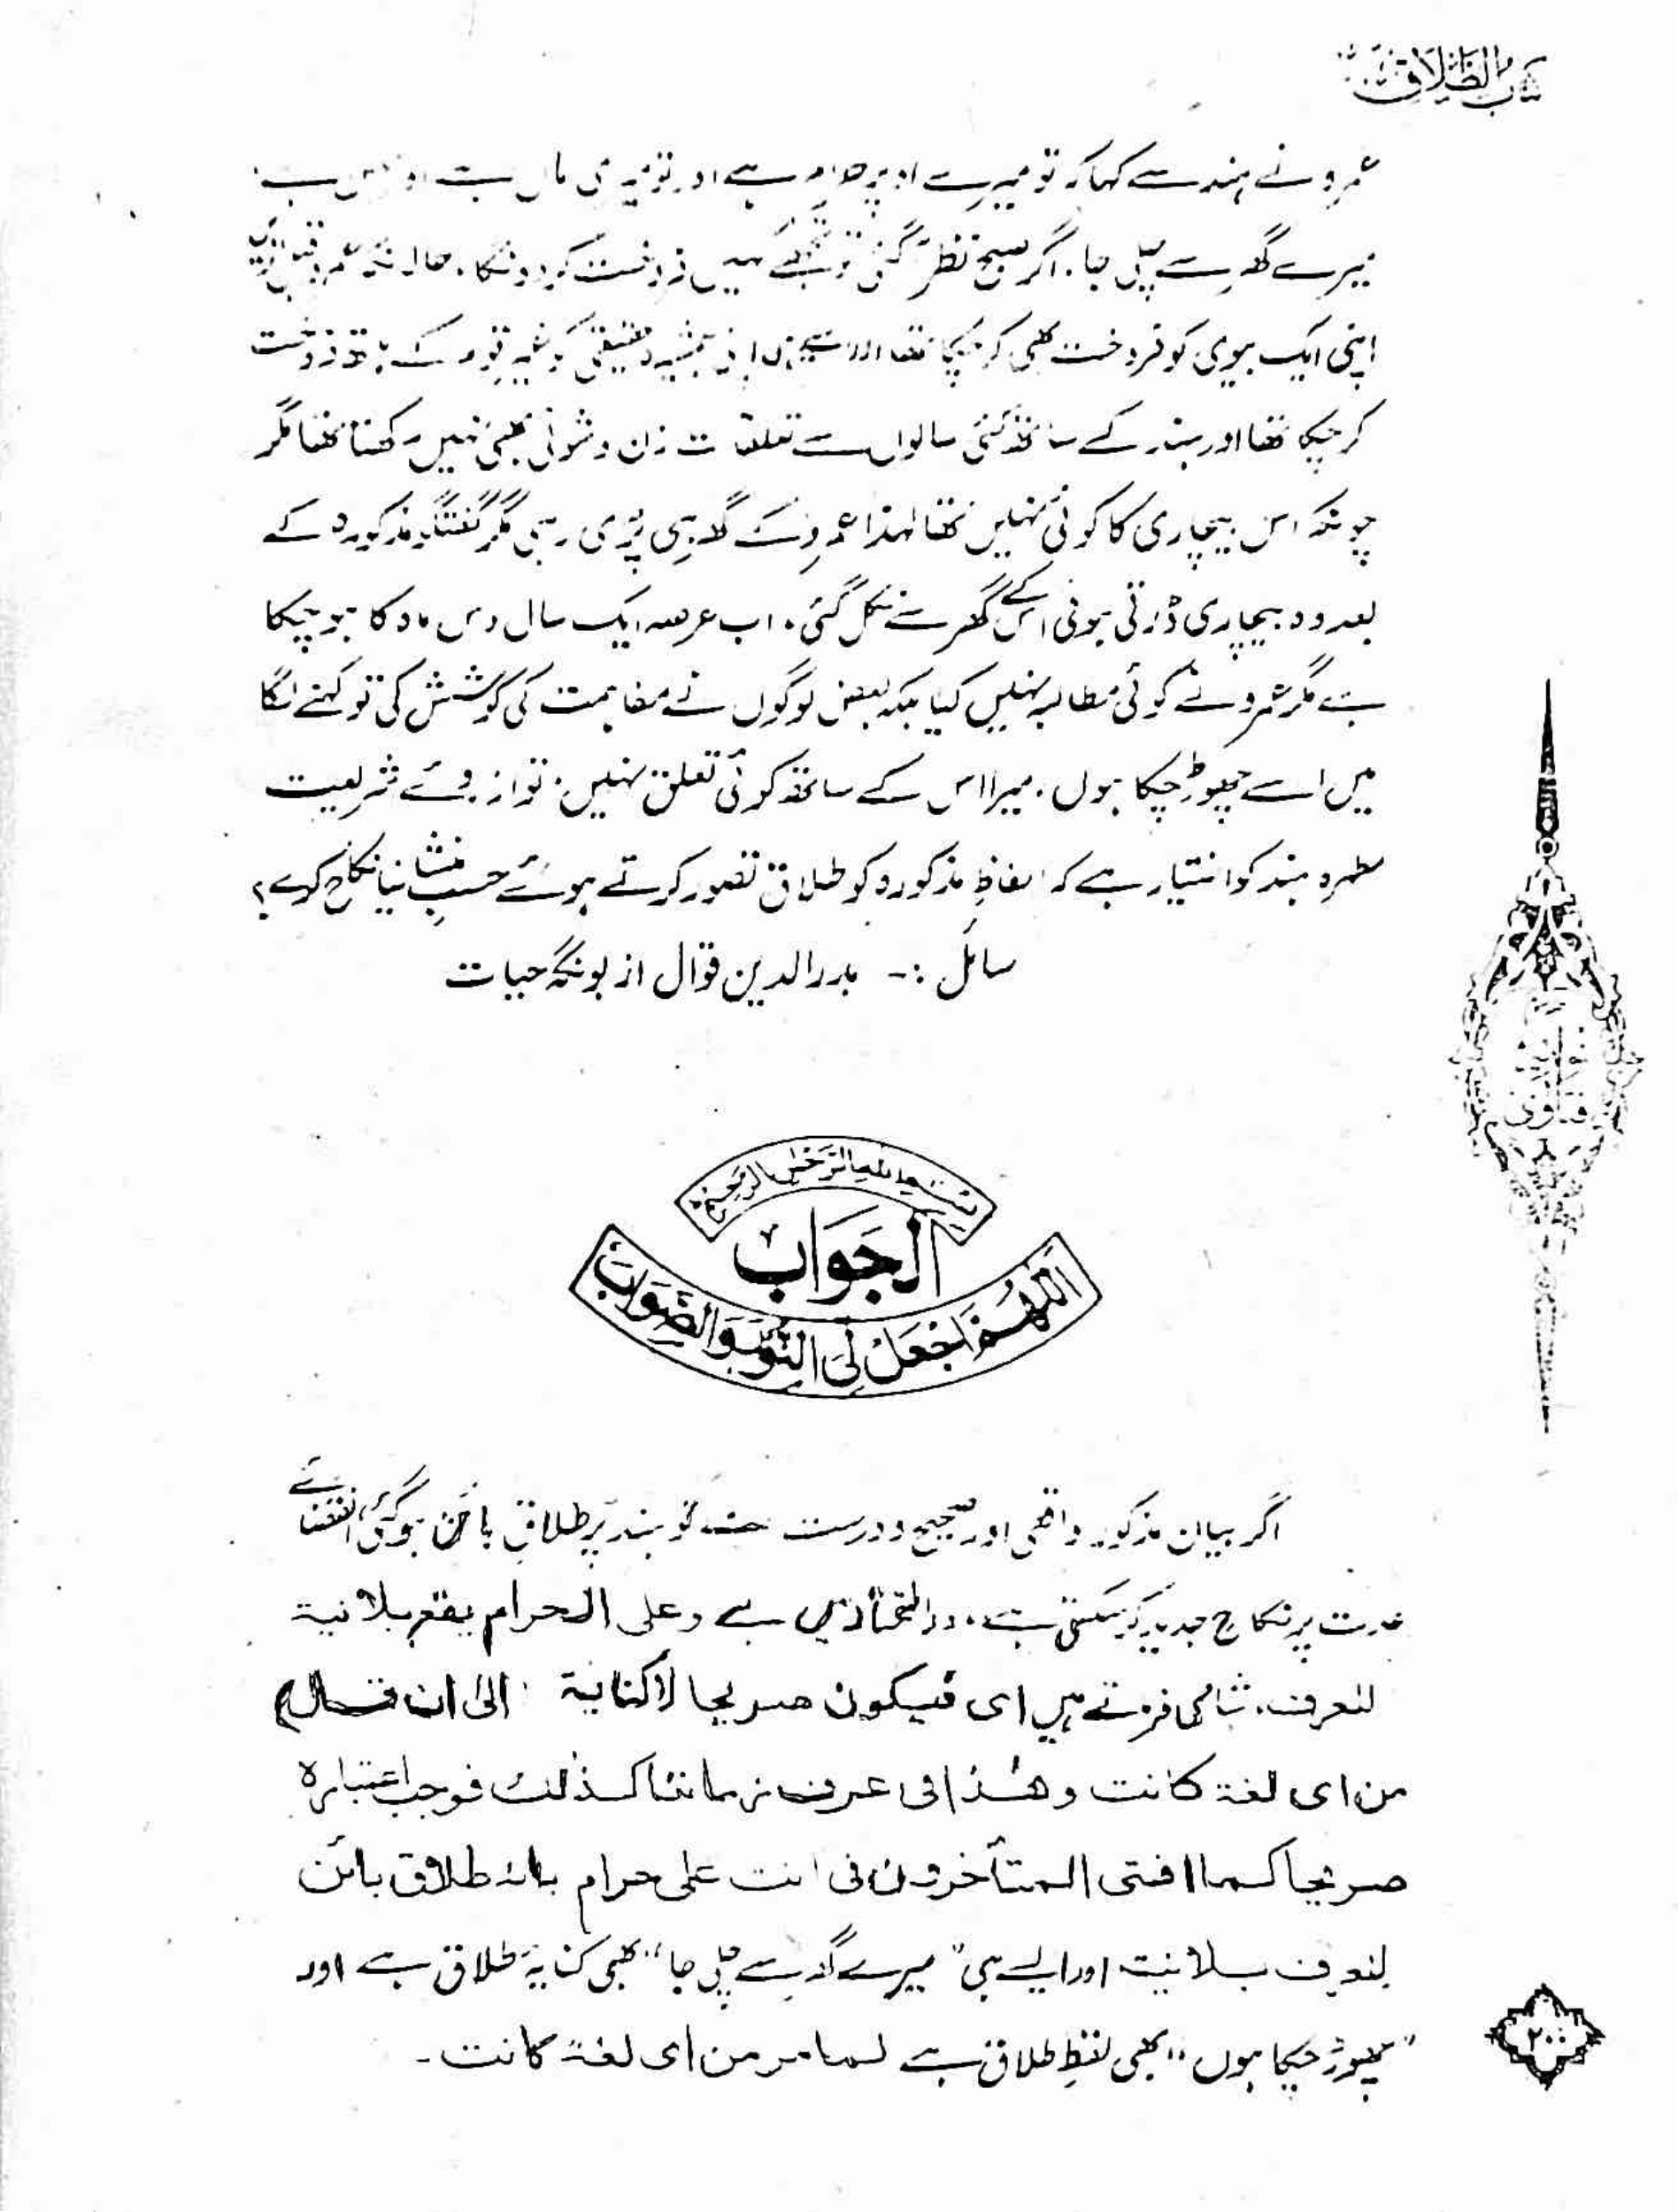 کتاب الطلاق
عمرو نے ہند سے کہا کہ تو میرے اوپر حرام ہے اور تو میری ماں ہے اور بہن ہے
میرے گھر سے چلی جا. اگر صبح نظر آگئی تو تجھے میں فروخت کر دونگا. حالانکہ عمرو قبل ازیں
اپنی ایک بیوی کو فروخت بھی کر چکا تھا اور ایسے ہی اپنی ہمشیرہ حقیقی کو غیر قوم کے ہاتھ فروخت
کر چکا تھا اور ہند کے ساتھ کئی سالوں سے تعلقات زن و شوئی بھی نہیں رکھتا تھا مگر
چونکہ اس بیچاری کا کوئی نہیں تھا لہذا عمرو کے گھر ہی پڑی رہی مگر گفتگو مذکورہ کے
بعد وہ بیچاری ڈرتی ہوئی اس کے گھر سے نکل گئی. اب عرصہ ایک سال دس ماہ کا ہو چکا
ہے مگر عمرو نے کوئی مطالبہ نہیں کیا بلکہ بعض لوگوں نے مفاہمت کی کوشش کی تو کہنے لگا
میں اسے چھوڑ چکا ہوں. میرا اس کے ساتھ کوئی تعلق نہیں. تو از روئے شریعت
مطہرہ ہند کو اختیار ہے کہ الفاظِ مذکورہ کو طلاق تصور کرتے ہوئے حسبِ منشا نیا نکاح کرے؟
سائل :- بدر الدین قوال از بونگہ حیات
بسم الله الرحمن الرحيم
الجَوَاب
اَللّٰهُمَّ اجْعَلْ لِیَ النُّوْرَ وَالصَّوَابَ
فتاوٰی نوریہ
اگر بیان مذکور واقعی اور صحیح و درست ہے تو ہند پر طلاقِ بائن ہو گئی، انقضائے
عدت پر نکاح جدید کر سکتی ہے. در المختار میں ہے وعلی الحرام یقع بلا نیۃ
للعرف. شامی فرماتے ہیں ای فیکون صریحا لا کنایۃ الیٰ ان قال
من ای لغۃ کانت وھٰذا فی عرف زماننا کذلک فوجب اعتبارہ
صریحا کما افتی المتأخرون فی انت علی حرام بانہ طلاق بائن
للعرف بلا نیت اور ایسے ہی "میرے گھر سے چلی جا" بھی کنایۂ طلاق ہے اور
"چھوڑ چکا ہوں" بھی لفظِ طلاق ہے لما مر من ای لغۃ کانت۔
۲۰۰